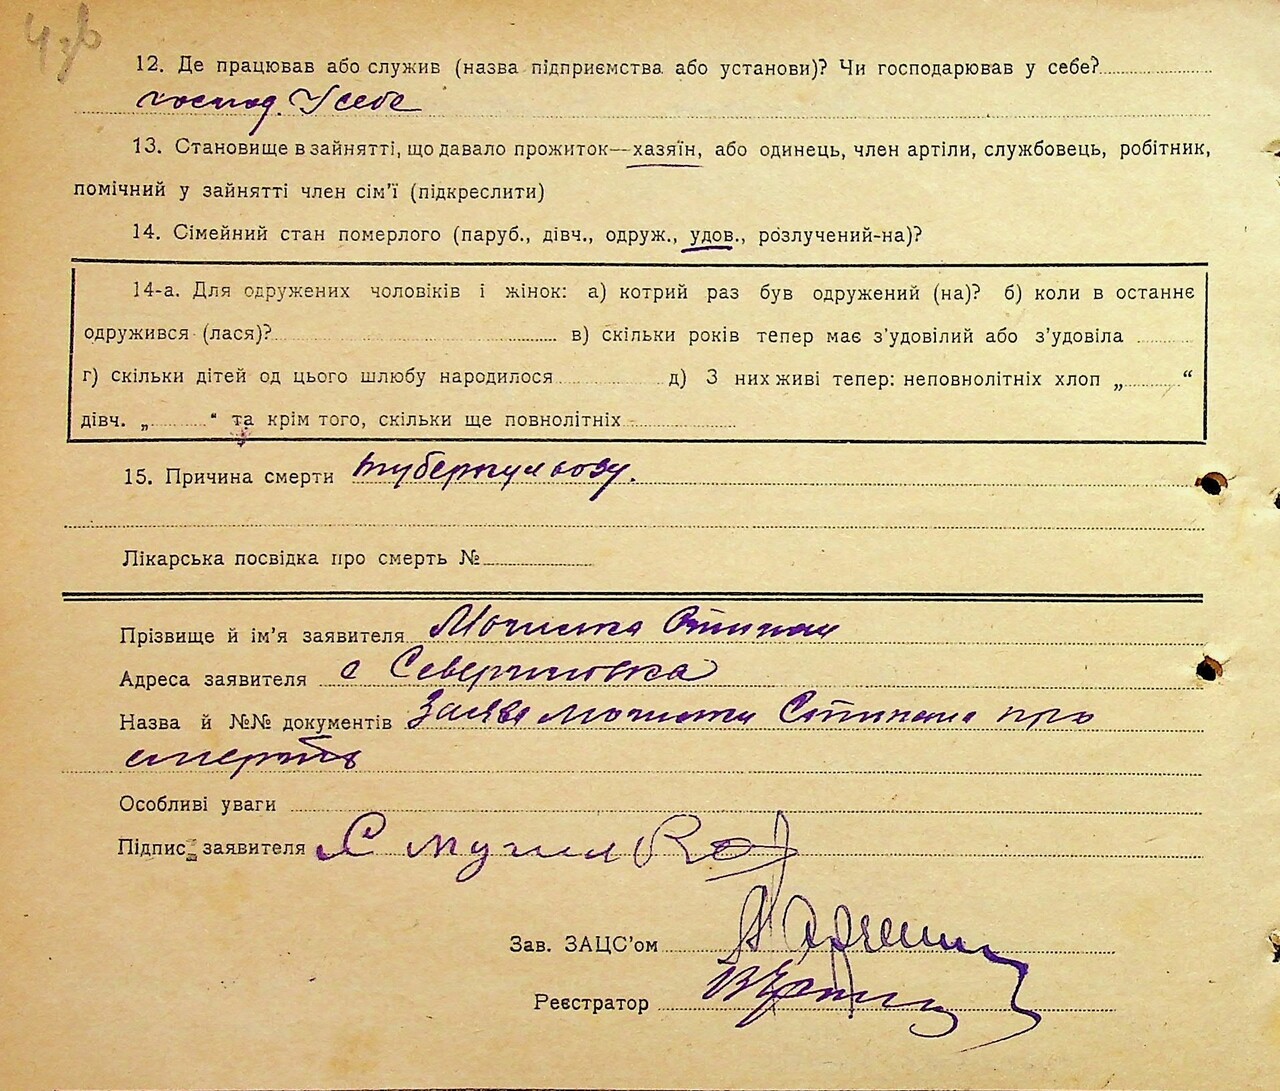 43в
12. Де працював або служив (назва підприємства або установи)? Чи господарював у себе?
господ. У себе
13. Становище в зайнятті, що давало прожиток—хазяїн, або одинець, член артіли, службовець, робітник,
помічний у зайнятті член сім'ї (підкреслити)
14. Сімейний стан померлого (паруб., дівч., одруж., удов., розлучений-на)?
14-а. Для одружених чоловіків і жінок: а) котрий раз був одружений (на)? б) коли в останнє
одружився (лася)? в) скільки років тепер має з'удовілий або з'удовіла
г) скільки дітей од цього шлюбу народилося д) З них живі тепер: неповнолітніх хлоп „ “
дівч. „ “ та крім того, скільки ще повнолітніх
15. Причина смерти туберкульозу.
Лікарська посвідка про смерть №
Прізвище й ім'я заявителя Могилка Степан
Адреса заявителя с Севериновка
Назва й №№ документів Заява Могилки Степана про
смерть
Особливі уваги
Підпис заявителя С могилко
Зав. ЗАЦС'ом
Реєстратор